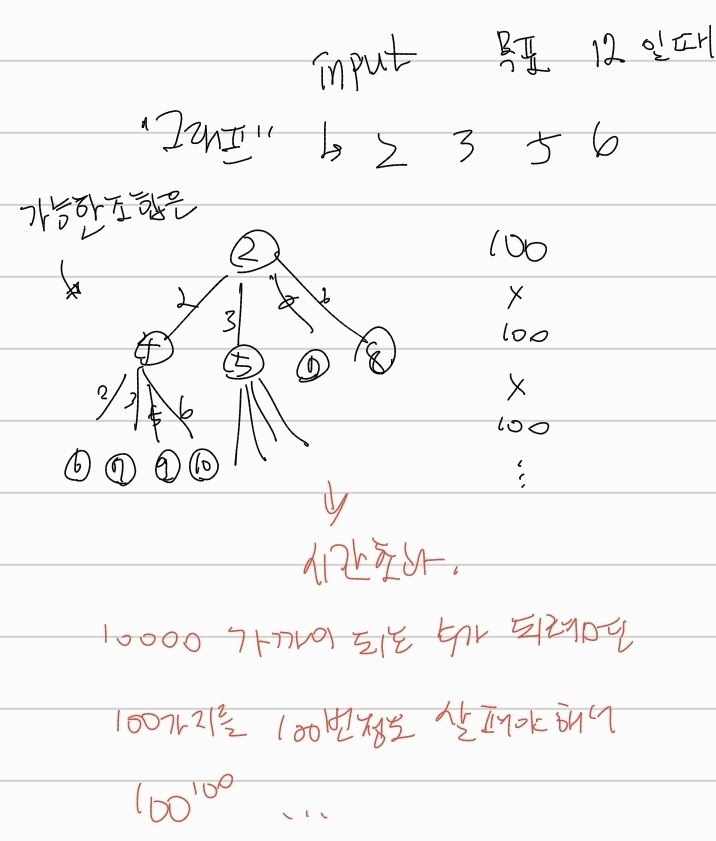 input 목표 12 일때
"그래프" ↳ 2 3 5 6
가능한 조합은
2
2 3 5 6
4 5 7 8
2 3 5 6
6 7 9 10
100
x
100
x
100
⋮
시간초과.
10000 가까이 되는 수가 되려면
100가지를 100번정도 살펴야해서
100¹⁰⁰ ...